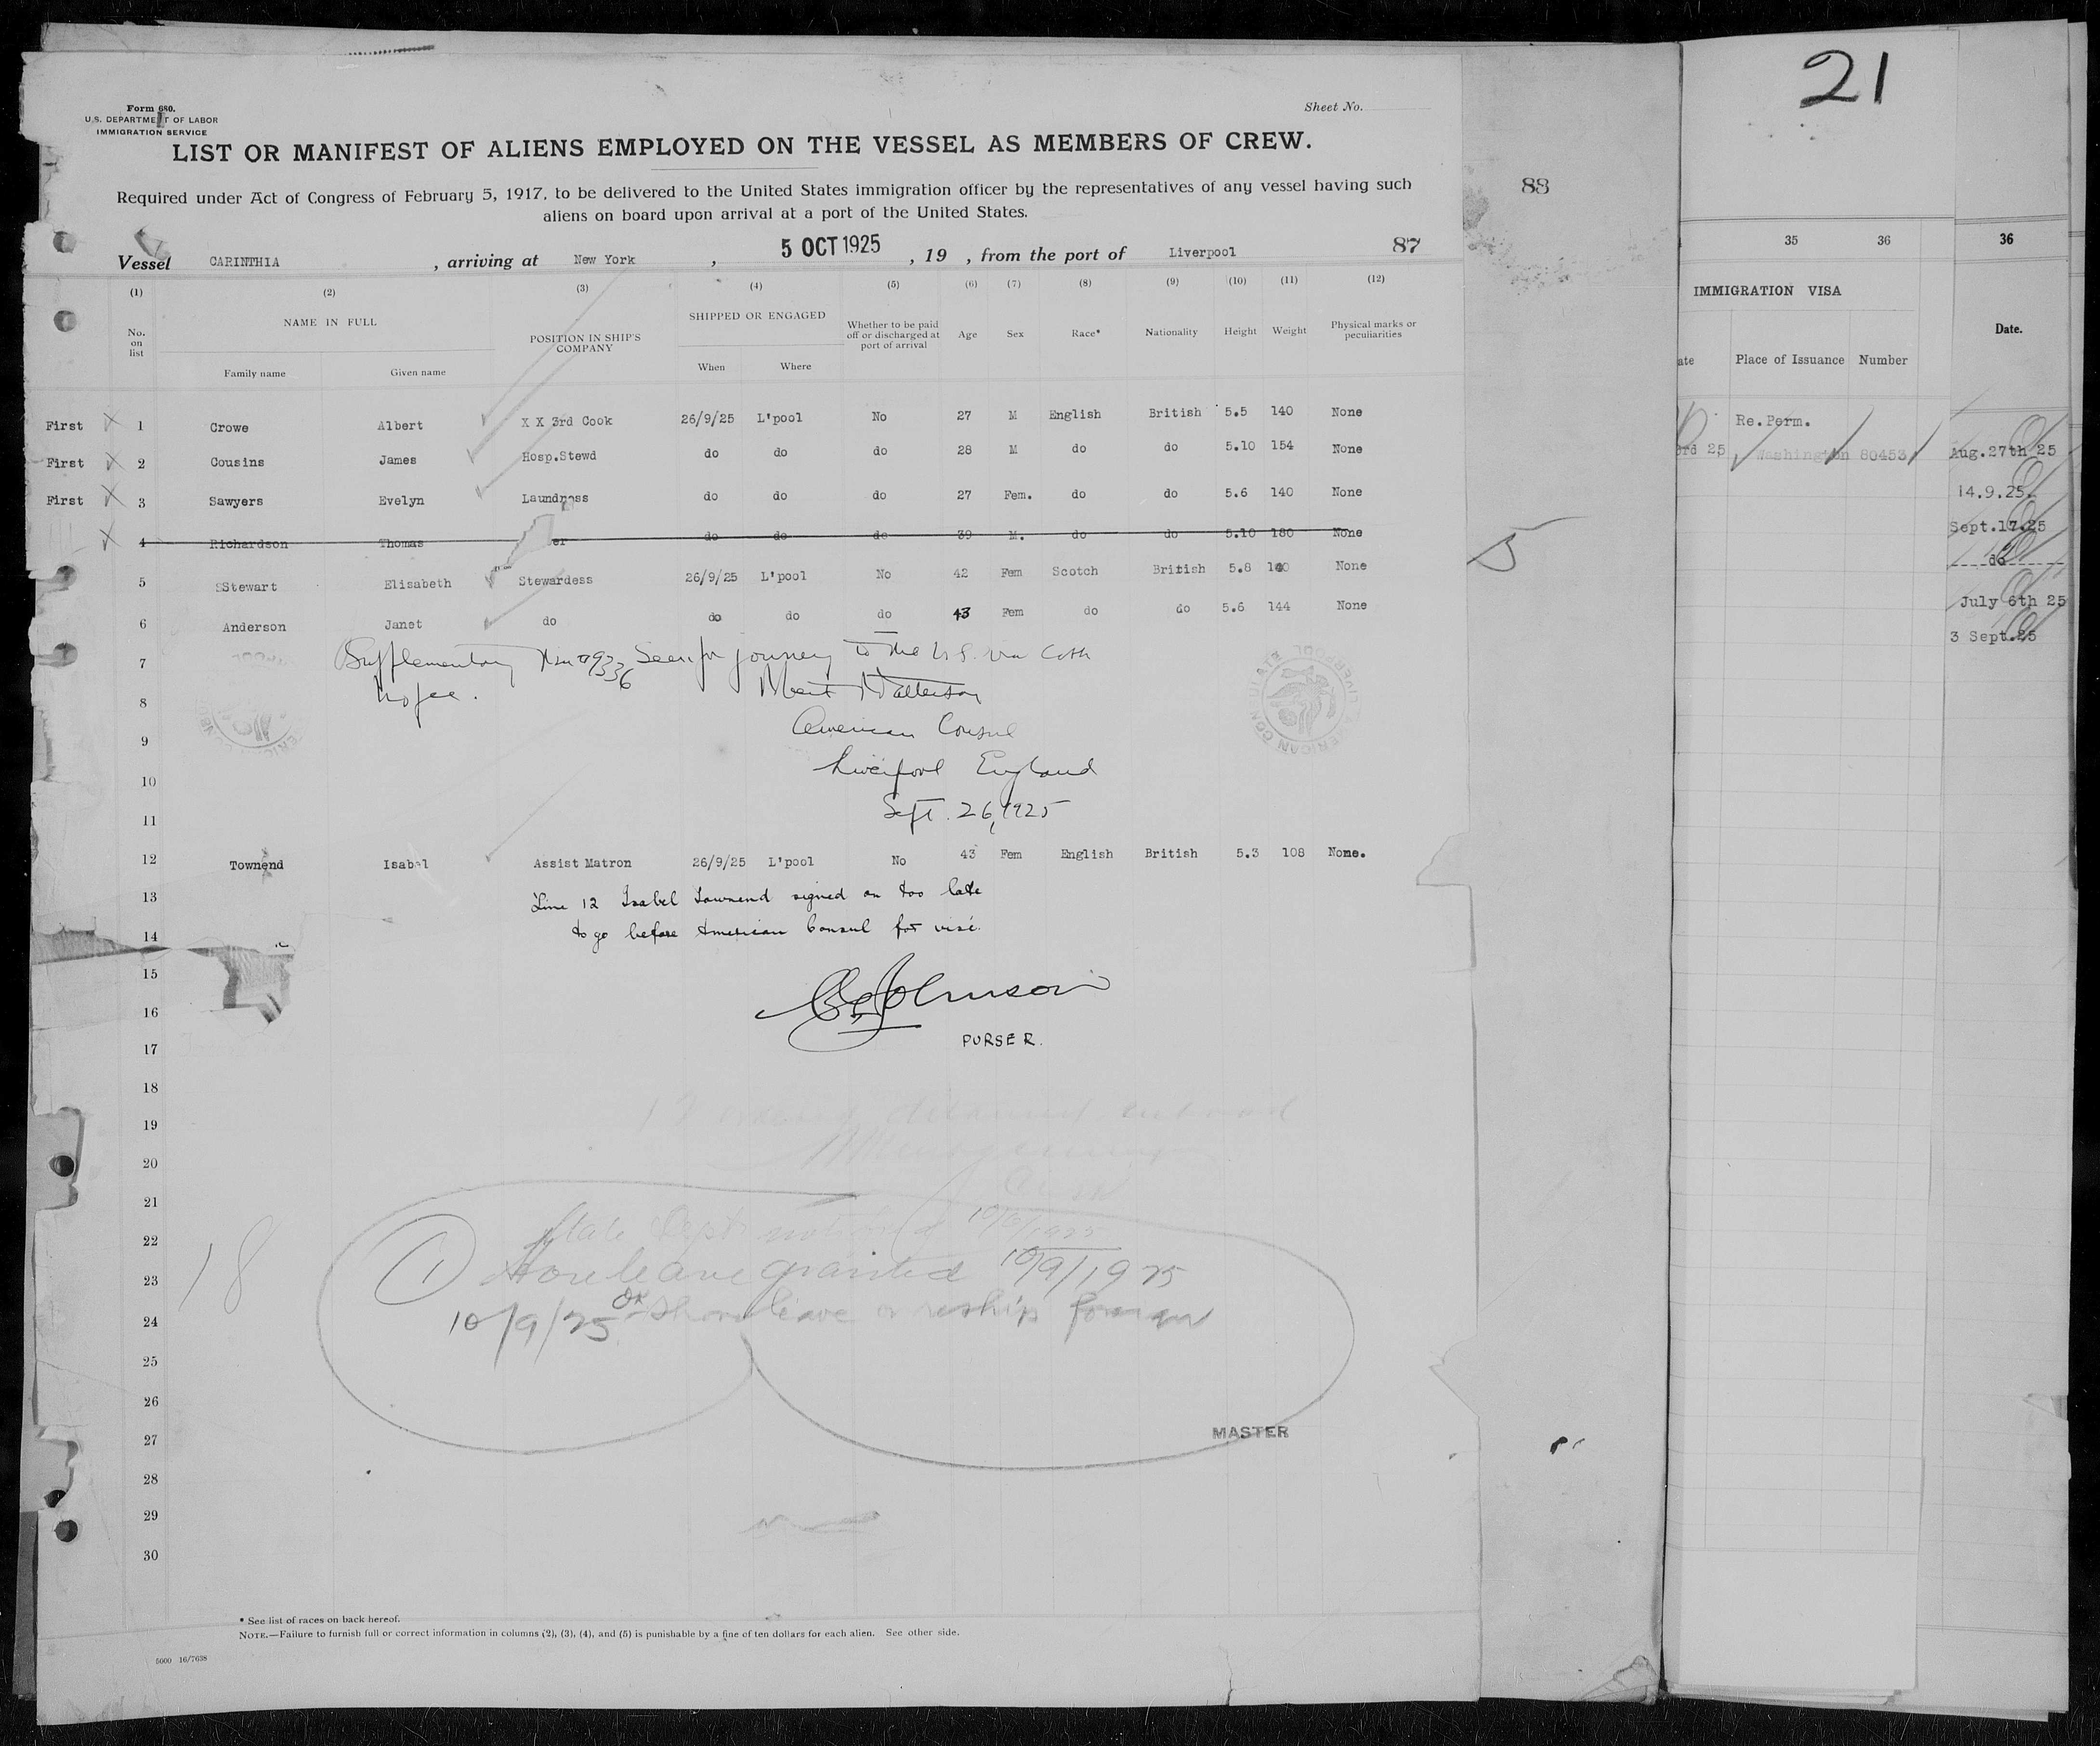 21
Form 680.
U.S. DEPARTMENT OF LABOR
IMMIGRATION SERVICE
Sheet No.
LIST OR MANIFEST OF ALIENS EMPLOYED ON THE VESSEL AS MEMBERS OF CREW.
Required under Act of Congress of February 5, 1917, to be delivered to the United States immigration officer by the representatives of any vessel having such
aliens on board upon arrival at a port of the United States.
88
Vessel CARINTHIA , arriving at New York , 5 OCT 1925 , 19 , from the port of Liverpool 87
(1) (2) (3) (4) (5) (6) (7) (8) (9) (10) (11) (12)
No. on list NAME IN FULL Family name Given name POSITION IN SHIP'S COMPANY SHIPPED OR ENGAGED When Where Whether to be paid off or discharged at port of arrival Age Sex Race* Nationality Height Weight Physical marks or peculiarities
First 1 Crowe Albert X X 3rd Cook 26/9/25 L'pool No 27 M English British 5.5 140 None
First 2 Cousins James Hosp.Stewd do do do 28 M do do 5.10 154 None
First 3 Sawyers Evelyn Laundress do do do 27 Fem. do do 5.6 140 None
4 Richardson Thomas er do do do 39 M. do do 5.10 180 None
5 Stewart Elisabeth Stewardess 26/9/25 L'pool No 42 Fem Scotch British 5.8 140 None
6 Anderson Janet do do do do 43 Fem do do 5.6 144 None
7
Supplementary Seen for journey to the U.S. via
No fee.
8
American Consul
9
Liverpool England
10
Sept. 26, 1925
11
12 Townend Isabel Assist Matron 26/9/25 L'pool No 43 Fem English British 5.3 108 None.
13
Line 12 Isabel Townend signed on too late
14
to go before American Consul for visé.
15
Johnson
16
17
PURSER.
18
19
20
21
22
State Dept notified 10/6/1925
18
23
1 Shore leave granted 10/9/1925
24
10/9/25 OK Shore leave or reship foreign
25
26
27
MASTER
28
29
30
* See list of races on back hereof.
NOTE.—Failure to furnish full or correct information in columns (2), (3), (4), and (5) is punishable by a fine of ten dollars for each alien. See other side.
5000 16/7638
35 36
IMMIGRATION VISA
ate Place of Issuance Number
Re.Perm.
3rd 25 Washington 80453
36
Date.
Aug.27th 25
14.9.25.
Sept.17.25
do
July 6th 25
3 Sept.25
5